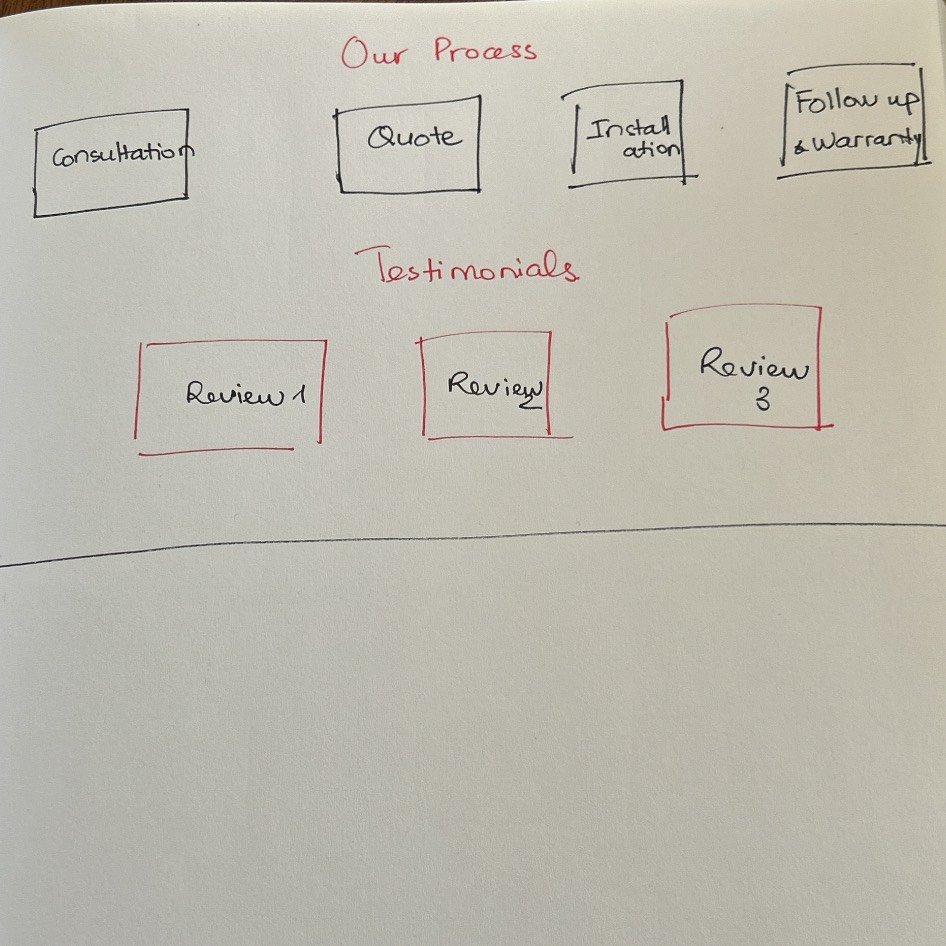 Our Process
Consultation
Quote
Install
ation
Follow up
& Warranty
Testimonials
Review 1
Review
2
Review
3